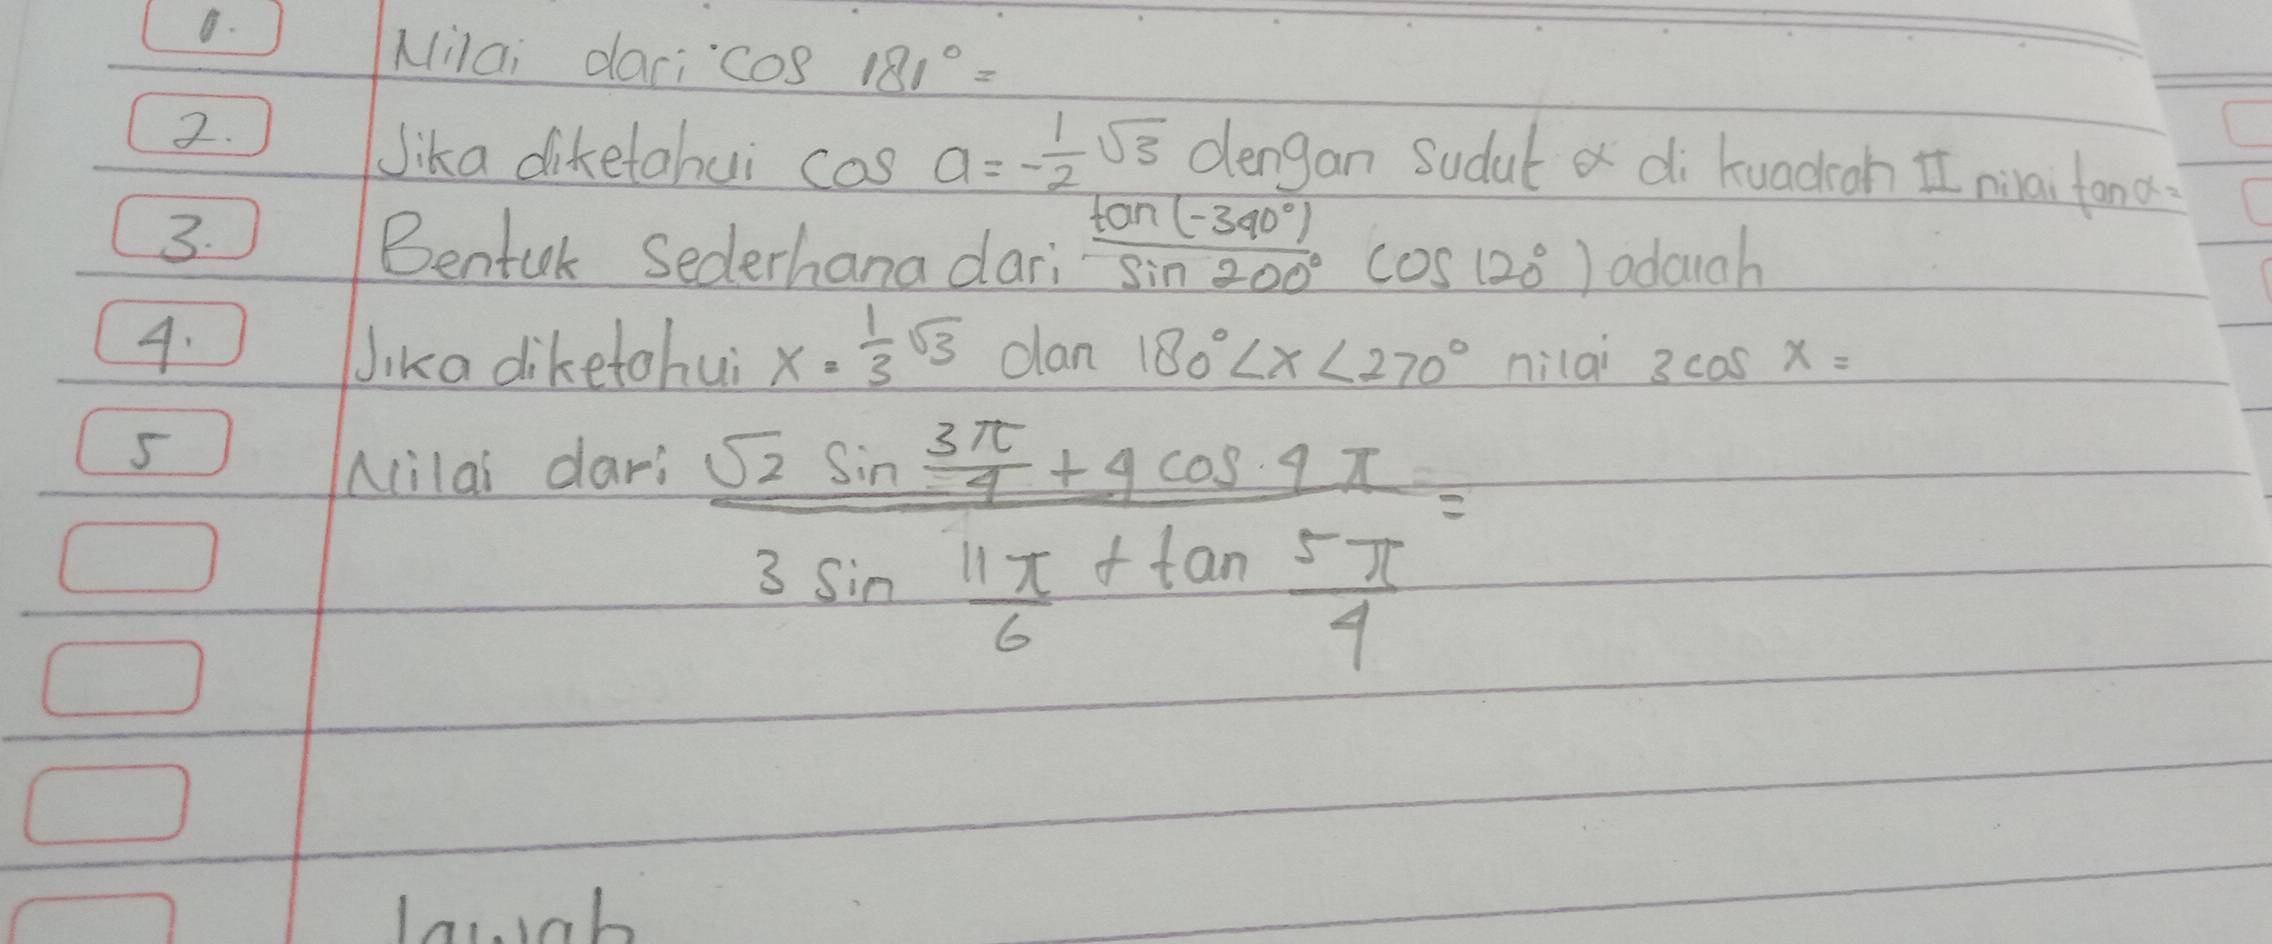 1. Nilai dari cos 181° =
2. Jika diketahui cos a = -1/2 √3 dengan sudut α di kuadran II nilai tan α =
3. Bentuk Sederhana dari tan (-340°) / sin 200° cos 120°) adalah
4. Jika diketahui x = 1/3 √3 dan 180° < x < 270° nilai 3 cos x =
5 Nilai dari √2 sin 3π/4 + 4 cos 4π =
3 sin 11π/6 + tan 5π/4
Jawab